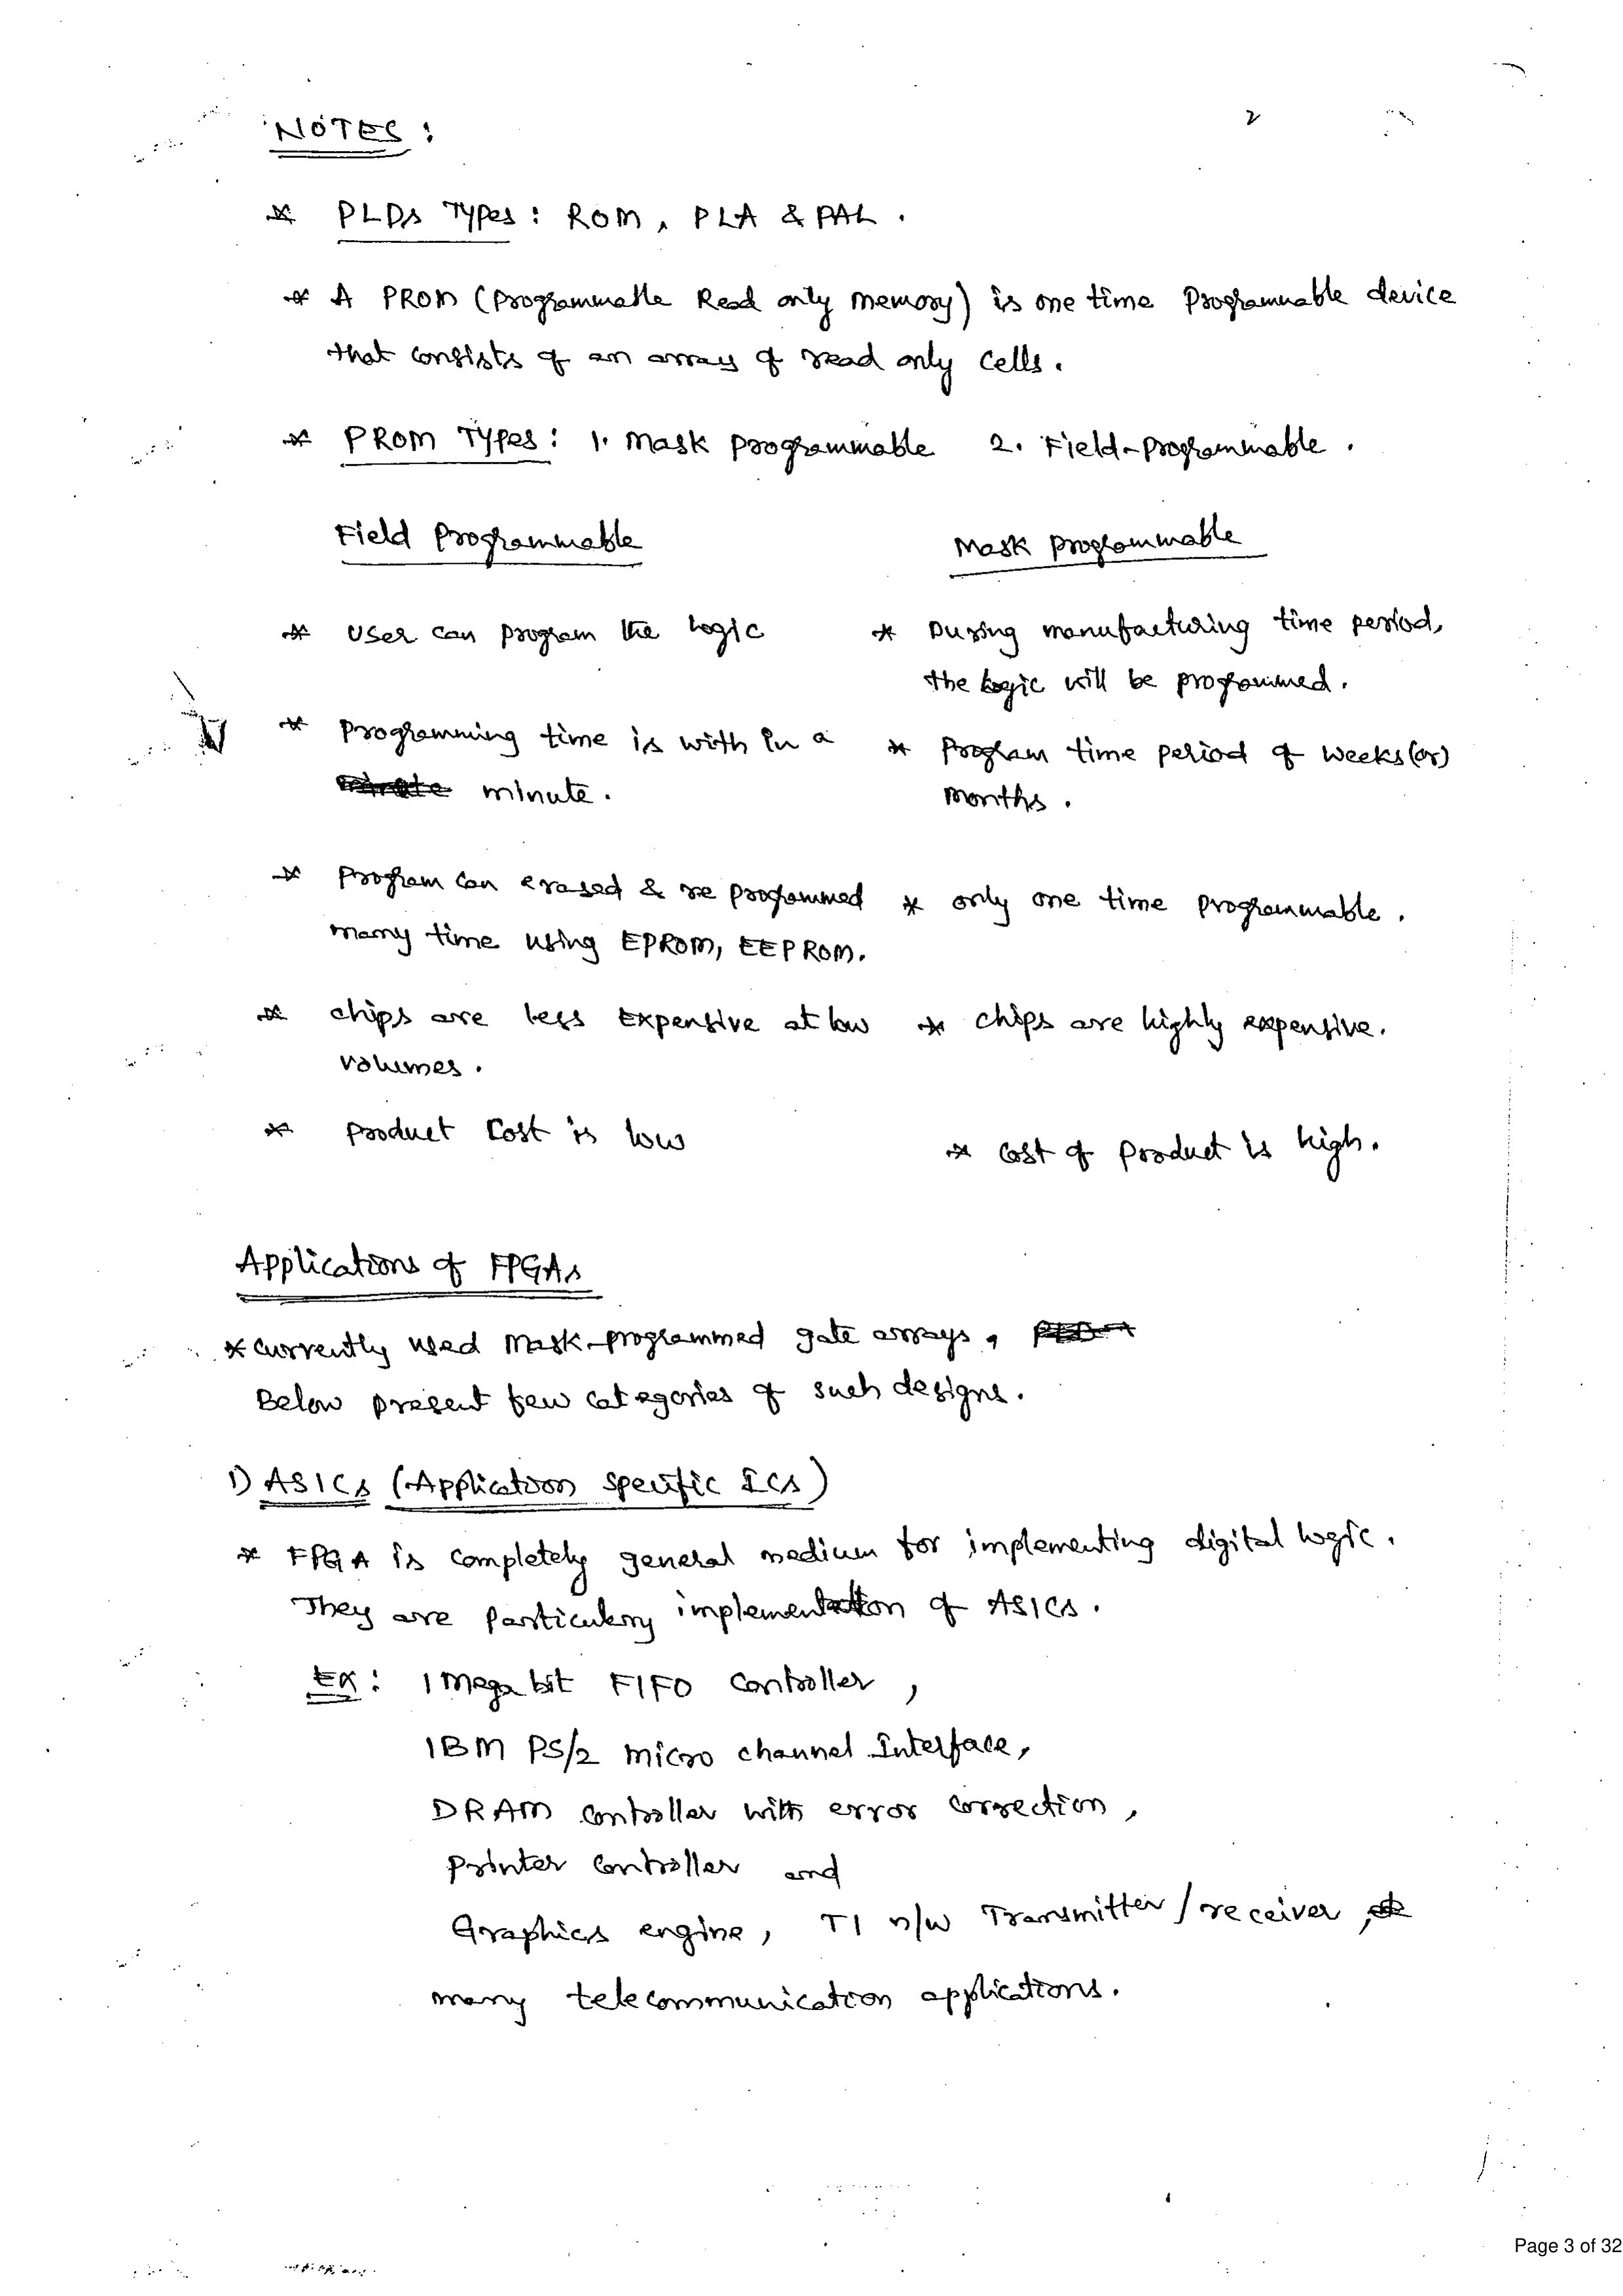 NOTES :
2
* PLDs Types : ROM, PLA & PAL .
* A PROM (Programmable Read only memory) is one time Programmable device
that consists of an array of read only cells .
* PROM Types : 1. Mask programmable 2. Field-programmable .
Field Programmable
Mask programmable
* User can program the logic
* During manufacturing time period,
the logic will be programmed .
* Programming time is with in a
minute .
* Program time period of weeks (or)
months .
* Program can erased & re programmed
many time using EPROM, EEPROM.
* only one time programmable .
* chips are less expensive at low
volumes .
* chips are highly expensive .
* product cost is low
* cost of product is high .
Applications of FPGAs
* Currently used Mask-programmed gate arrays ,
Below present few categories of such designs .
1) ASICs (Application specific ICs)
* FPGA is completely general medium for implementing digital logic .
They are particulary implementation of ASICs .
Ex : 1 Mega bit FIFO controller ,
IBM PS/2 micro channel Interface ,
DRAM controller with error correction ,
Printer controller and
Graphics engine , T1 n/w Transmitter / receiver ,
many telecommunication applications .
Page 3 of 32